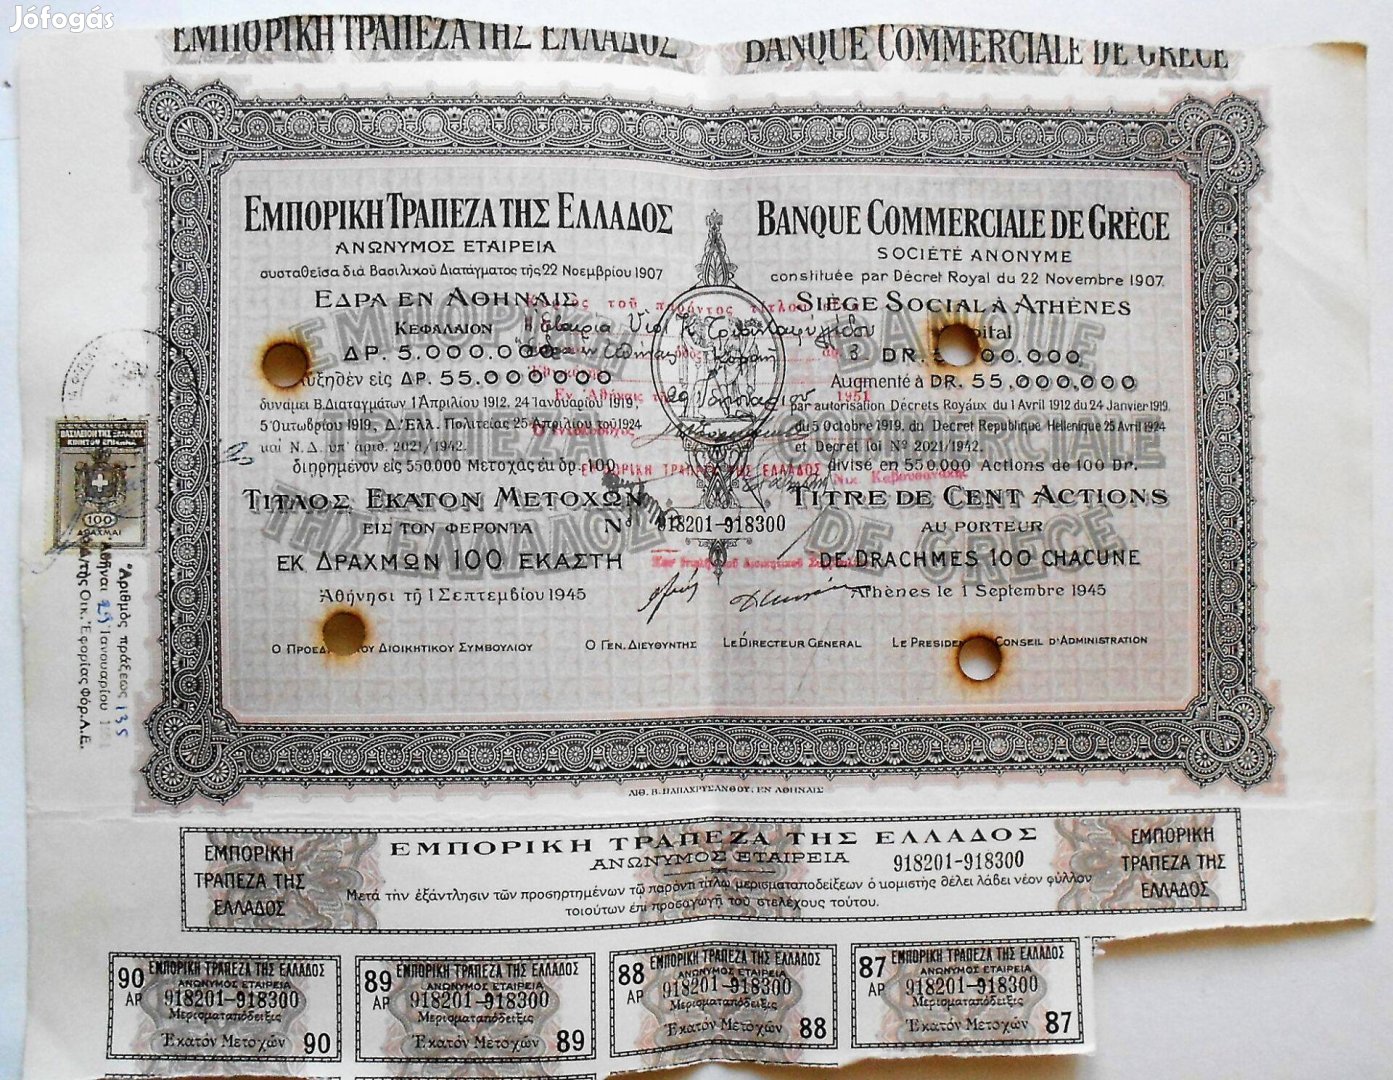 Jófogás
ΕΜΠΟΡΙΚΗ ΤΡΑΠΕΖΑ ΤΗΣ ΕΛΛΑΔΟΣ
BANQUE COMMERCIALE DE GRÈCE
ΕΜΠΟΡΙΚΗ ΤΡΑΠΕΖΑ ΤΗΣ ΕΛΛΑΔΟΣ
ΑΝΩΝΥΜΟΣ ΕΤΑΙΡΕΙΑ
συσταθεῖσα διὰ Βασιλικοῦ Διατάγματος τῆς 22 Νοεμβρίου 1907
ΕΔΡΑ ΕΝ ΑΘΗΝΑΙΣ
ΚΕΦΑΛΑΙΟΝ
ΔΡ. 5.000.000
αὐξηθὲν εἰς ΔΡ. 55.000000
δυνάμει Β. Διαταγμάτων 1 Ἀπριλίου 1912, 24 Ἰανουαρίου 1919,
5 Ὀκτωβρίου 1919, Δ. Ἑλλ. Πολιτείας 25 Ἀπριλίου τοῦ 1924
καὶ Ν.Δ. ὑπ' ἀριθ. 2021/1942.
διῃρημένον εἰς 550.000 Μετοχὰς ἐκ δρ. 100
ΤΙΤΛΟΣ ΕΚΑΤΟΝ ΜΕΤΟΧΩΝ
ΕΙΣ ΤΟΝ ΦΕΡΟΝΤΑ
ΕΚ ΔΡΑΧΜΩΝ 100 ΕΚΑΣΤΗ
Ἀθήνησι τῇ 1 Σεπτεμβίου 1945
Ο ΠΡΟΕΔ ΟΥ ΔΙΟΙΚΗΤΙΚΟΥ ΣΥΜΒΟΥΛΙΟΥ
Ο ΓΕΝ. ΔΙΕΥΘΥΝΤΗΣ
Nº 918201-918300
BANQUE COMMERCIALE DE GRÈCE
SOCIÉTÉ ANONYME
constituée par Décret Royal du 22 Novembre 1907.
SIÈGE SOCIAL À ATHÈNES
Capital
DR. 5.000.000
Augmenté à DR. 55,000,000
par autorisation Décrets Royaux du 1 Avril 1912 du 24 Janvier 1919
du 5 Octobre 1919. du Décret Republique Hellenique 25 Avril 1924
et Decret loi Nº 2021/1942.
divisé en 550,000 Actions de 100 Dr.
TITRE DE CENT ACTIONS
AU PORTEUR
DE DRACHMES 100 CHACUNE
Athènes le 1 Septembre 1945
LE DIRECTEUR GENERAL
LE PRESIDEN CONSEIL D'ADMINISTRATION
τοῦ παρόντος τίτλου
Ἐν Ἀθήναις
29 Ἰανουαρίου 1951
ΕΜΠΟΡΙΚΗ ΤΡΑΠΕΖΑ ΤΗΣ ΕΛΛΑΔΟΣ
ΕΜΠΟΡΙΚΗ
ΤΡΑΠΕΖΑ
ΤΗΣ ΕΛΛΑΔΟΣ
BANQUE
COMMERCIALE
DE GRÈCE
ΒΑΣΙΛΕΙΟΝ ΤΗΣ ΕΛΛΑΔΟΣ
100
ΔΡΑΧΜΑΙ
Ἀριθμὸς πράξεως 135
Ἀθῆναι 29 Ἰανουαρίου 1951
Δ/τῆς Οἰκ. Ἐφορίας Φορ. Α.Ε.
ΛΙΘ. Β. ΠΑΠΑΧΡΥΣΑΝΘΟΥ, ΕΝ ΑΘΗΝΑΙΣ
ΕΜΠΟΡΙΚΗ
ΤΡΑΠΕΖΑ ΤΗΣ
ΕΛΛΑΔΟΣ
ΕΜΠΟΡΙΚΗ ΤΡΑΠΕΖΑ ΤΗΣ ΕΛΛΑΔΟΣ
ΑΝΩΝΥΜΟΣ ΕΤΑΙΡΕΙΑ
918201-918300
Μετὰ τὴν ἐξάντλησιν τῶν προσηρτημένων τῷ παρόντι τίτλῳ μερισματαποδείξεων ὁ κομιστὴς θέλει λάβει νέον φύλλον
τοιούτων ἐπὶ προσαγωγῇ τοῦ στελέχους τούτου.
ΕΜΠΟΡΙΚΗ
ΤΡΑΠΕΖΑ ΤΗΣ
ΕΛΛΑΔΟΣ
90 ΕΜΠΟΡΙΚΗ ΤΡΑΠΕΖΑ ΤΗΣ ΕΛΛΑΔΟΣ
ΑΝΩΝΥΜΟΣ ΕΤΑΙΡΕΙΑ
ΑΡ 918201-918300
Μερισματαπόδειξις
Ἑκατὸν Μετοχῶν 90
89 ΕΜΠΟΡΙΚΗ ΤΡΑΠΕΖΑ ΤΗΣ ΕΛΛΑΔΟΣ
ΑΝΩΝΥΜΟΣ ΕΤΑΙΡΕΙΑ
ΑΡ 918201-918300
Μερισματαπόδειξις
Ἑκατὸν Μετοχῶν 89
88 ΕΜΠΟΡΙΚΗ ΤΡΑΠΕΖΑ ΤΗΣ ΕΛΛΑΔΟΣ
ΑΝΩΝΥΜΟΣ ΕΤΑΙΡΕΙΑ
ΑΡ 918201-918300
Μερισματαπόδειξις
Ἑκατὸν Μετοχῶν 88
87 ΕΜΠΟΡΙΚΗ ΤΡΑΠΕΖΑ ΤΗΣ ΕΛΛΑΔΟΣ
ΑΝΩΝΥΜΟΣ ΕΤΑΙΡΕΙΑ
ΑΡ 918201-918300
Μερισματαπόδειξις
Ἑκατὸν Μετοχῶν 87